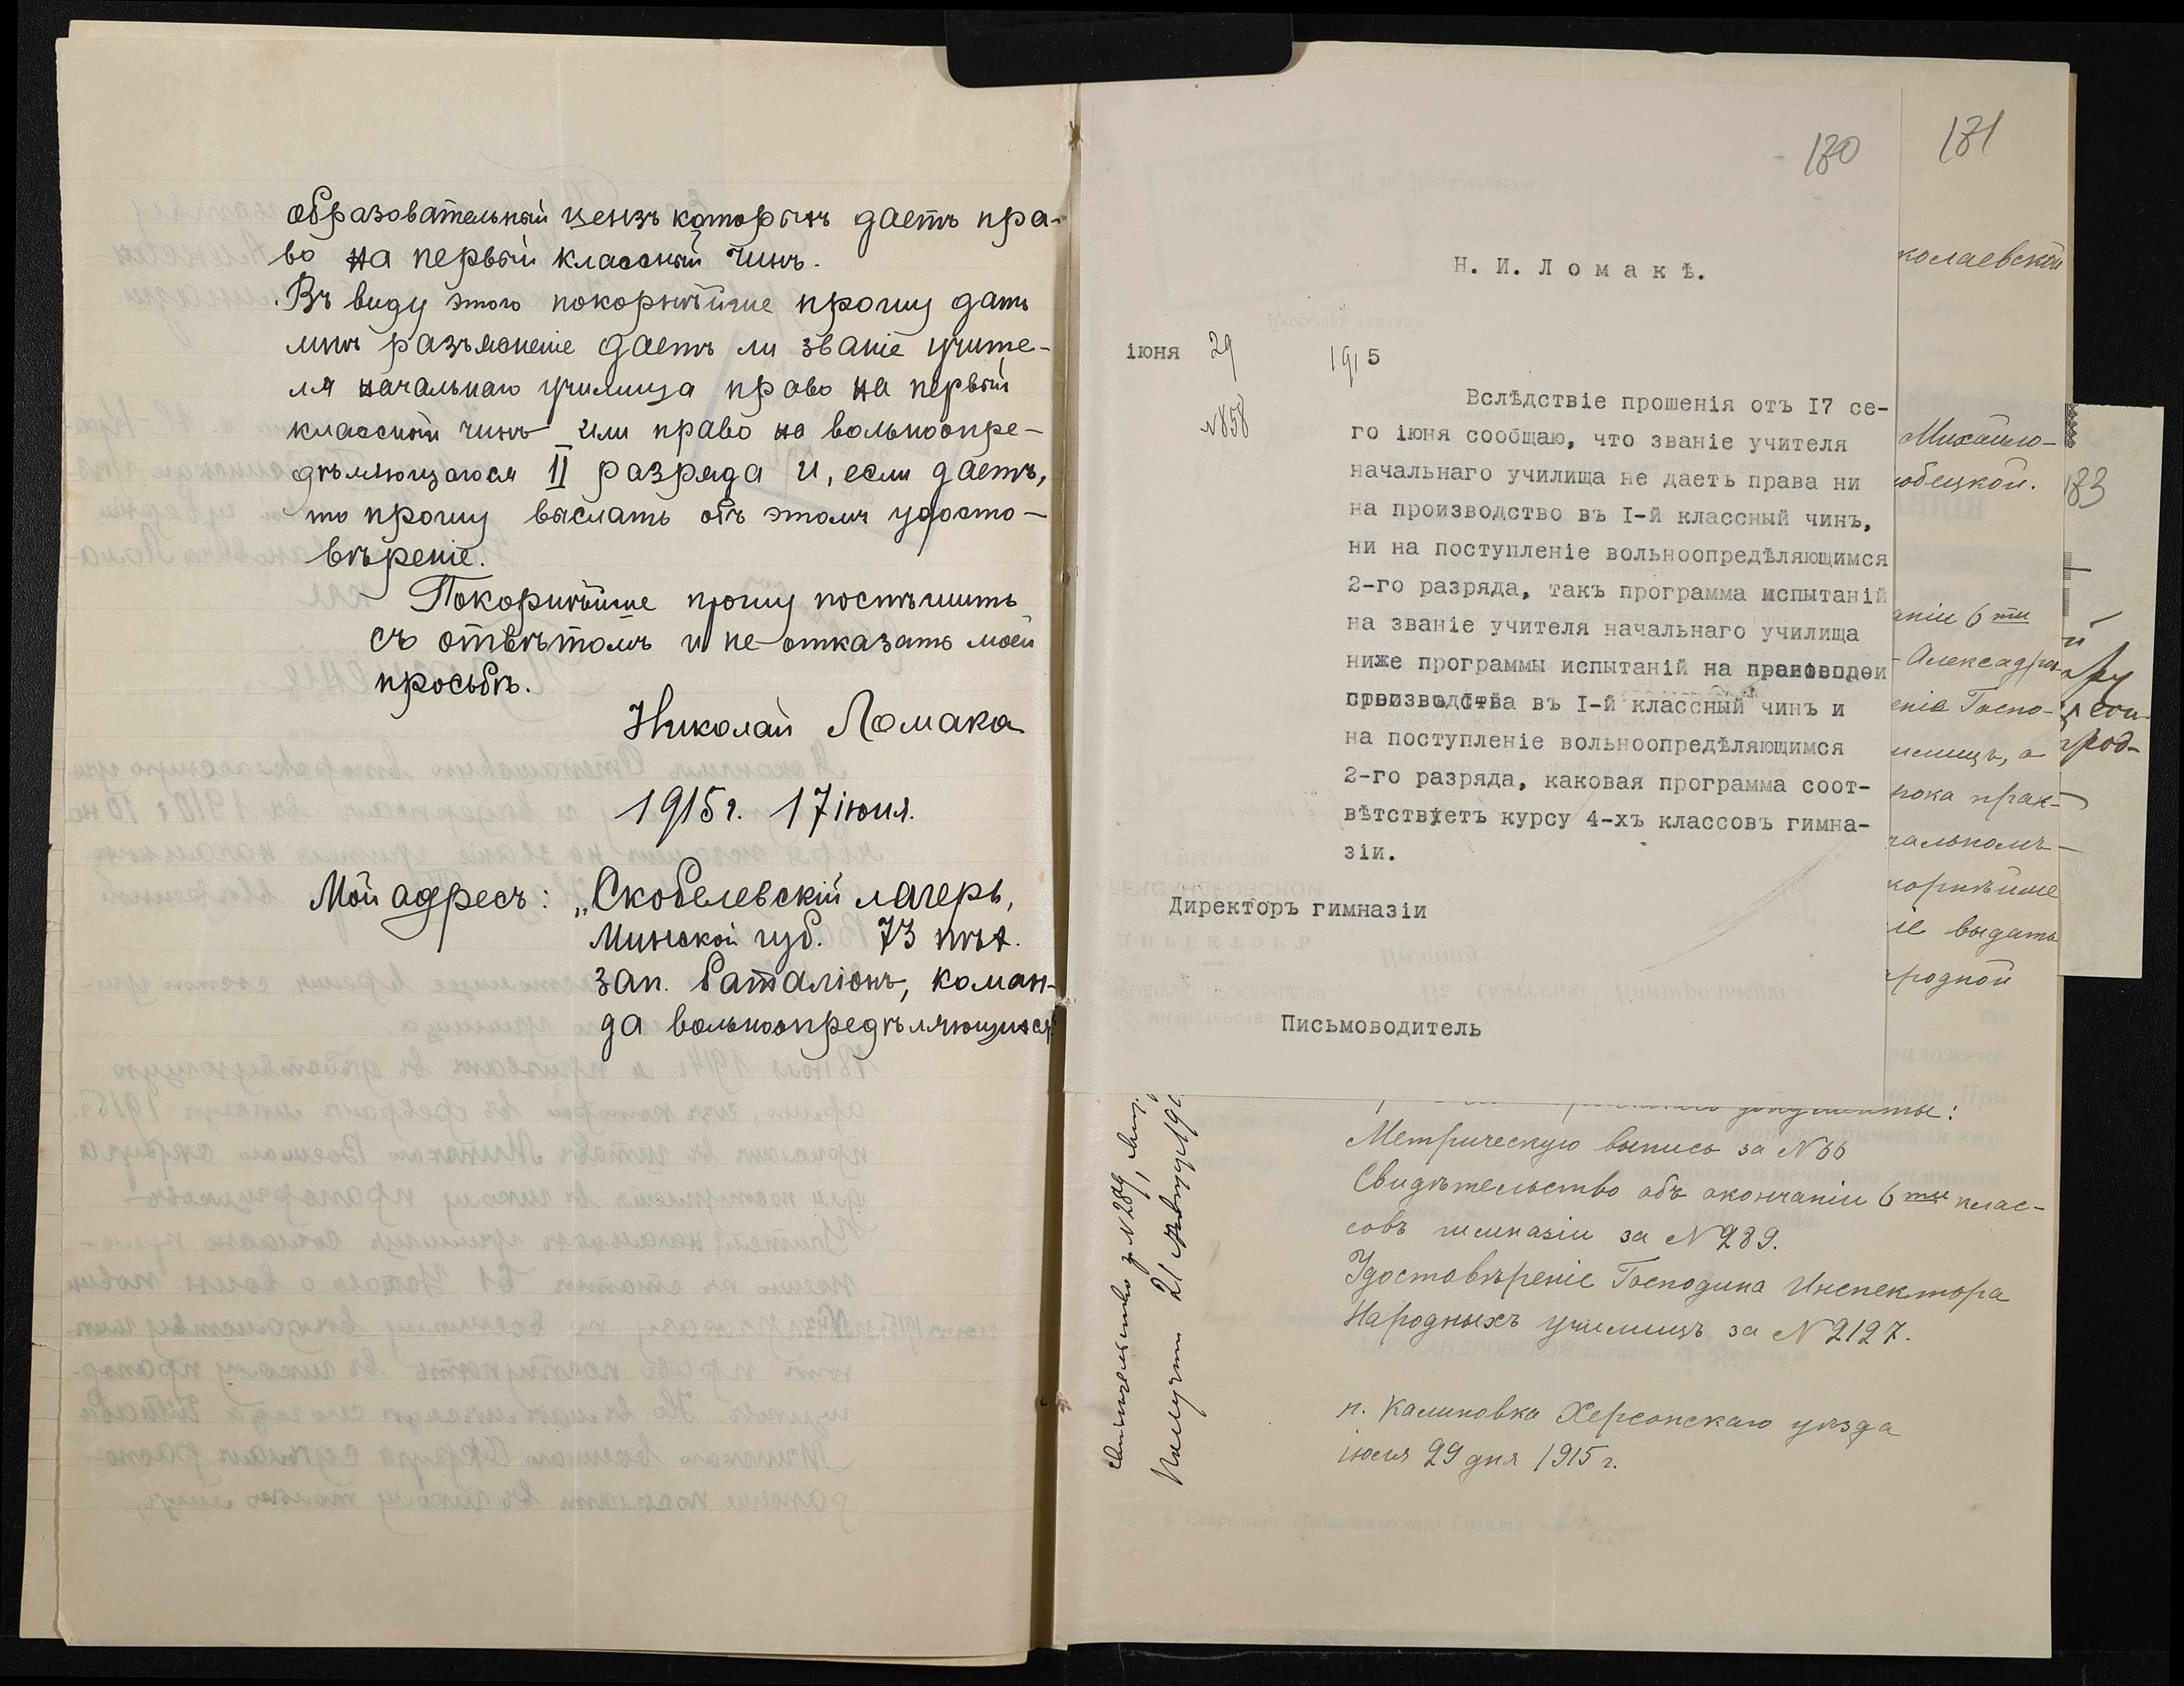 образовательный цензъ которыхъ даетъ пра-
во на первый классный чинъ.
Въ виду этого покорнѣйше прошу дать
мнѣ разъясненіе даетъ ли званіе учите-
ля начальнаго училища право на первый
классный чинъ или право на вольноопре-
дѣляющагося II разряда и, если даетъ,
то прошу выслать объ этомъ удосто-
вѣреніе.
Покорнѣйше прошу поспѣшить
съ отвѣтомъ и не отказать моей
просьбѣ.
Николай Ломака
1915 г. 17 іюня.
Мой адресъ: „Скобелевскій лагерь,
Минской губ. 73 пѣх.
зап. баталіонъ, коман-
да вольноопредѣляющихся"
180
Н. И. Ломакѣ.
іюня 29 1915
№858
Вслѣдствіе прошенія отъ I7 се-
го іюня сообщаю, что званіе учителя
начальнаго училища не даетъ права ни
на производство въ I-й классный чинъ,
ни на поступленіе вольноопредѣляющимся
2-го разряда, такъ программа испытаній
на званіе учителя начальнаго училища
ниже программы испытаній на
производства въ I-й классный чинъ и
на поступленіе вольноопредѣляющимся
2-го разряда, каковая программа соот-
вѣтствуетъ курсу 4-хъ классовъ гимна-
зіи.
Директоръ гимназіи
Письмоводитель
181
колаевской
Михайло-
юбецкой.
аніи 6 ти
Алексадро-
енія Госпо-
илищъ, а
пока прак-
чальномъ
корнѣйше
выдать
родной
документы:
Метрическую выпись за №66
Свидѣтельство объ окончаніи 6 ти клас-
совъ гимназіи за №289.
Удостовѣреніе Господина Инспектора
Народныхъ училищъ за №2127.
п. Калиновка Херсонскаго уѣзда
іюля 29 дня 1915 г.
за №289,
Получила 21
183